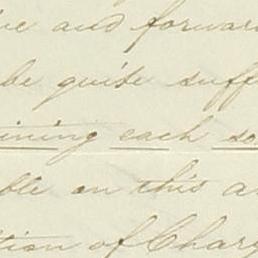 ive and forward
be quite suff
ining each so
ble on this a
tion of Char